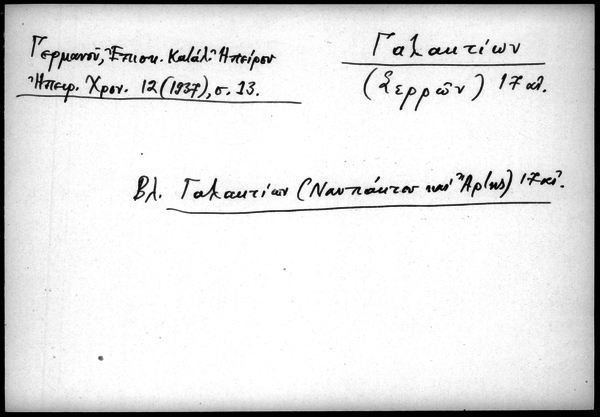 Γερμανοῦ, Ἐπισκ. Κατάλ. Ἠπείρου
Ἠπειρ. Χρον. 12 (1937), σ. 13.
Γαλακτίων
(Σερρῶν) 17 αἰ.
Βλ. Γαλακτίων (Ναυπάκτου καὶ Ἄρτης) 17 αἰ.